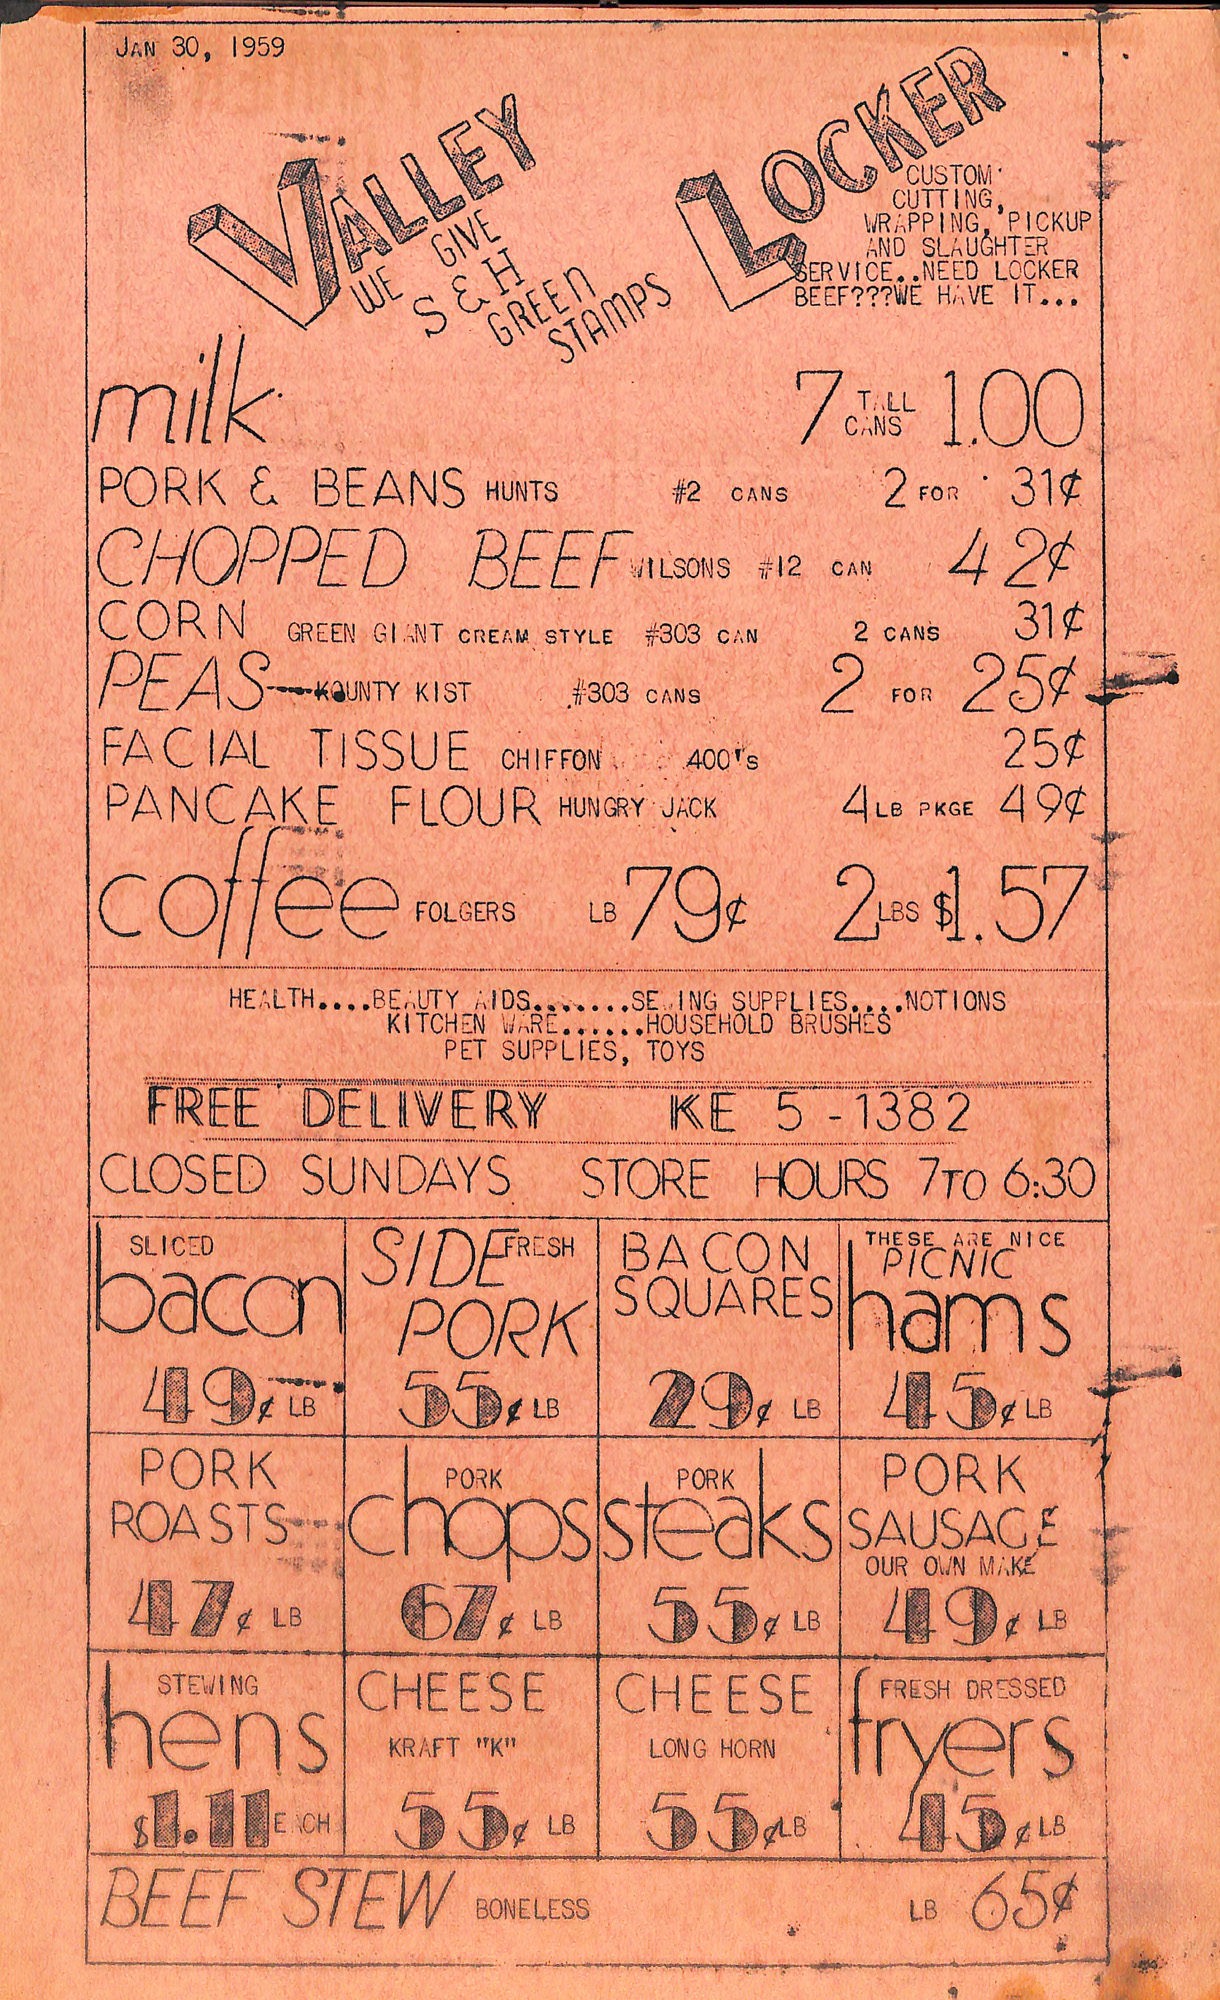 JAN 30, 1959
VALLEY LOCKER
WE GIVE
S & H
GREEN
STAMPS
CUSTOM
CUTTING,
WRAPPING, PICKUP
AND SLAUGHTER
SERVICE..NEED LOCKER
BEEF???WE HAVE IT...
milk 7 TALL CANS 1.00
PORK & BEANS HUNTS #2 CANS 2 FOR 31¢
CHOPPED BEEF WILSONS #12 CAN 42¢
CORN GREEN GIANT CREAM STYLE #303 CAN 2 CANS 31¢
PEAS KOUNTY KIST #303 CANS 2 FOR 25¢
FACIAL TISSUE CHIFFON 400's 25¢
PANCAKE FLOUR HUNGRY JACK 4 LB PKGE 49¢
coffee FOLGERS LB 79¢ 2 LBS $1.57
HEALTH....BEAUTY AIDS.......SEWING SUPPLIES....NOTIONS
KITCHEN WARE......HOUSEHOLD BRUSHES
PET SUPPLIES, TOYS
FREE DELIVERY KE 5-1382
CLOSED SUNDAYS STORE HOURS 7 TO 6:30
SLICED
bacon
49¢ LB
SIDE FRESH
PORK
55¢ LB
BACON
SQUARES
29¢ LB
THESE ARE NICE
PICNIC
hams
45¢ LB
PORK
ROASTS
47¢ LB
PORK
chops
67¢ LB
PORK
steaks
55¢ LB
PORK
SAUSAGE
OUR OWN MAKE
49¢ LB
STEWING
hens
$1.11 EACH
CHEESE
KRAFT "K"
55¢ LB
CHEESE
LONG HORN
55¢ LB
FRESH DRESSED
fryers
45¢ LB
BEEF STEW BONELESS LB 65¢